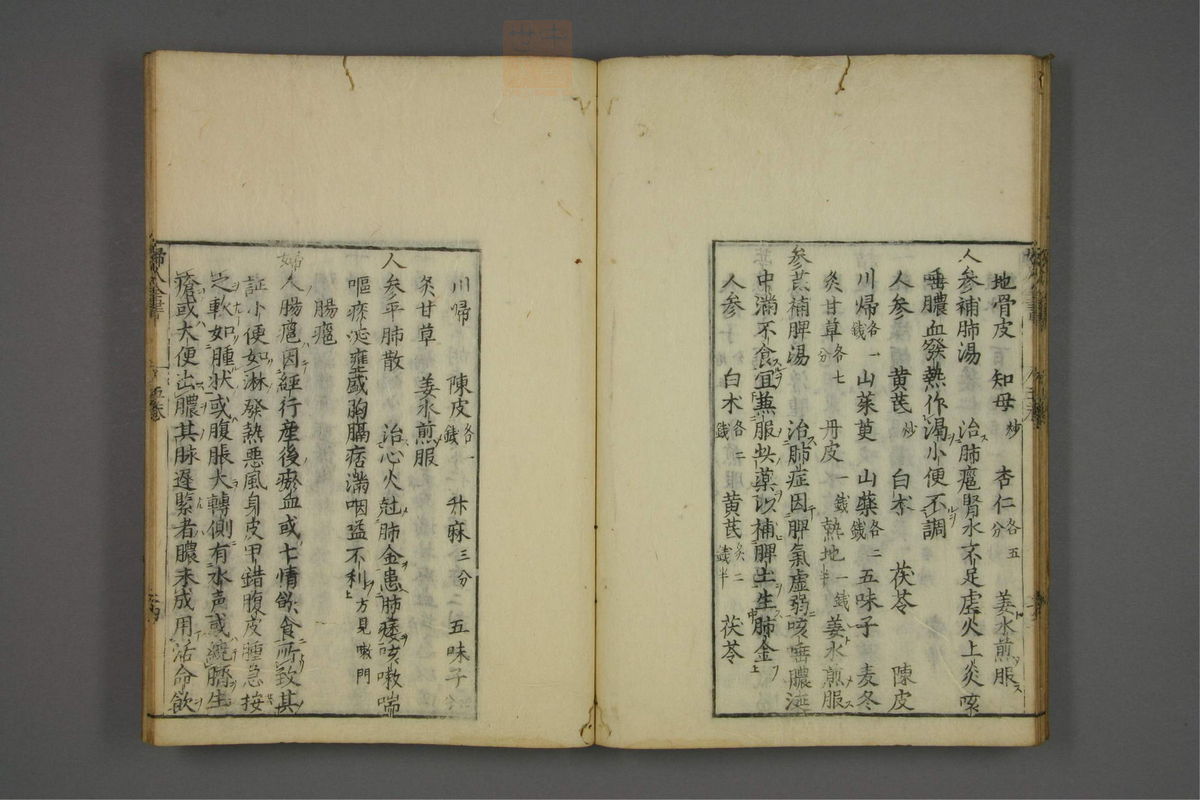 地骨皮 知母炒 杏仁各五分 姜水煎服
人参補肺湯 治肺癰腎水不足虚火上炎咳
唾膿血發熱作渇小便不調
人参 黄芪炒 白朮 茯苓 陳皮
川帰各一錢 山茱萸 山藥各二錢 五味子 麦冬
炙甘草各七分 丹皮一錢 熟地一錢半 姜水煎服
参芪補脾湯 治肺症因脾氣虚弱咳唾膿涎
中満不食宜兼服此藥以補脾土生肺金
人参 白朮各二錢 黄芪炙二錢半 茯苓
川帰 陳皮各一錢 升麻三分 五味子
炙甘草 姜水煎服
人参平肺散 治心火尅肺金患肺痿咳嗽喘
嘔痰涎壅盛胸膈痞満咽嗌不利方見嗽門
腸癰
婦人腸癰因経行産後瘀血或七情飲食所致其
証小便如淋發熱悪風身皮甲錯腹皮腫急按
之軟如腫状或腹脹大轉側有水声或繞臍生
瘡或大便出膿其脉遅緊者膿未成用活命飲